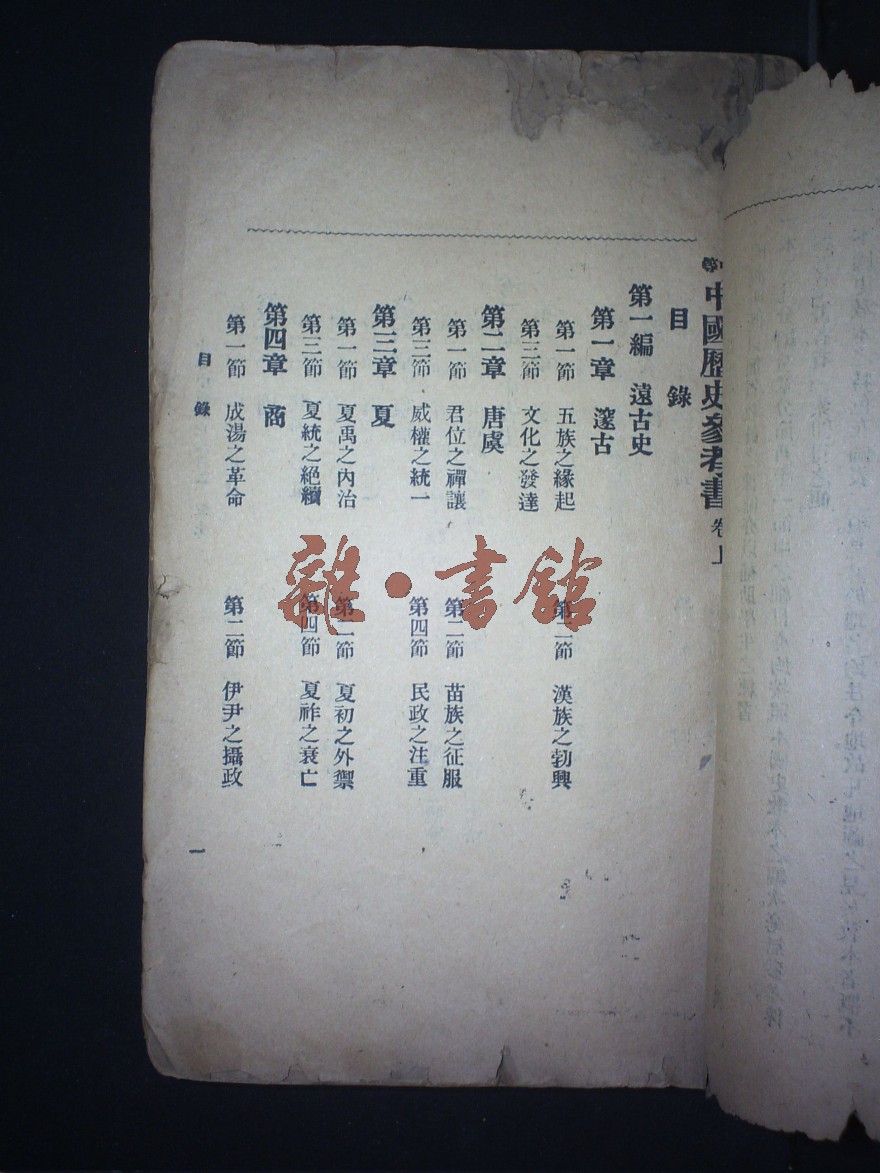 中國歷史參考書 卷上
目錄
第一編 遠古史
第一章 邃古
第一節 五族之緣起 第二節 漢族之勃興
第三節 文化之發達
第二章 唐虞
第一節 君位之禪讓 第二節 苗族之征服
第三節 威權之統一 第四節 民政之注重
第三章 夏
第一節 夏禹之內治 第二節 夏初之外禦
第三節 夏統之絕續 第四節 夏祚之衰亡
第四章 商
第一節 成湯之革命 第二節 伊尹之攝政
目錄 一
雜·書館